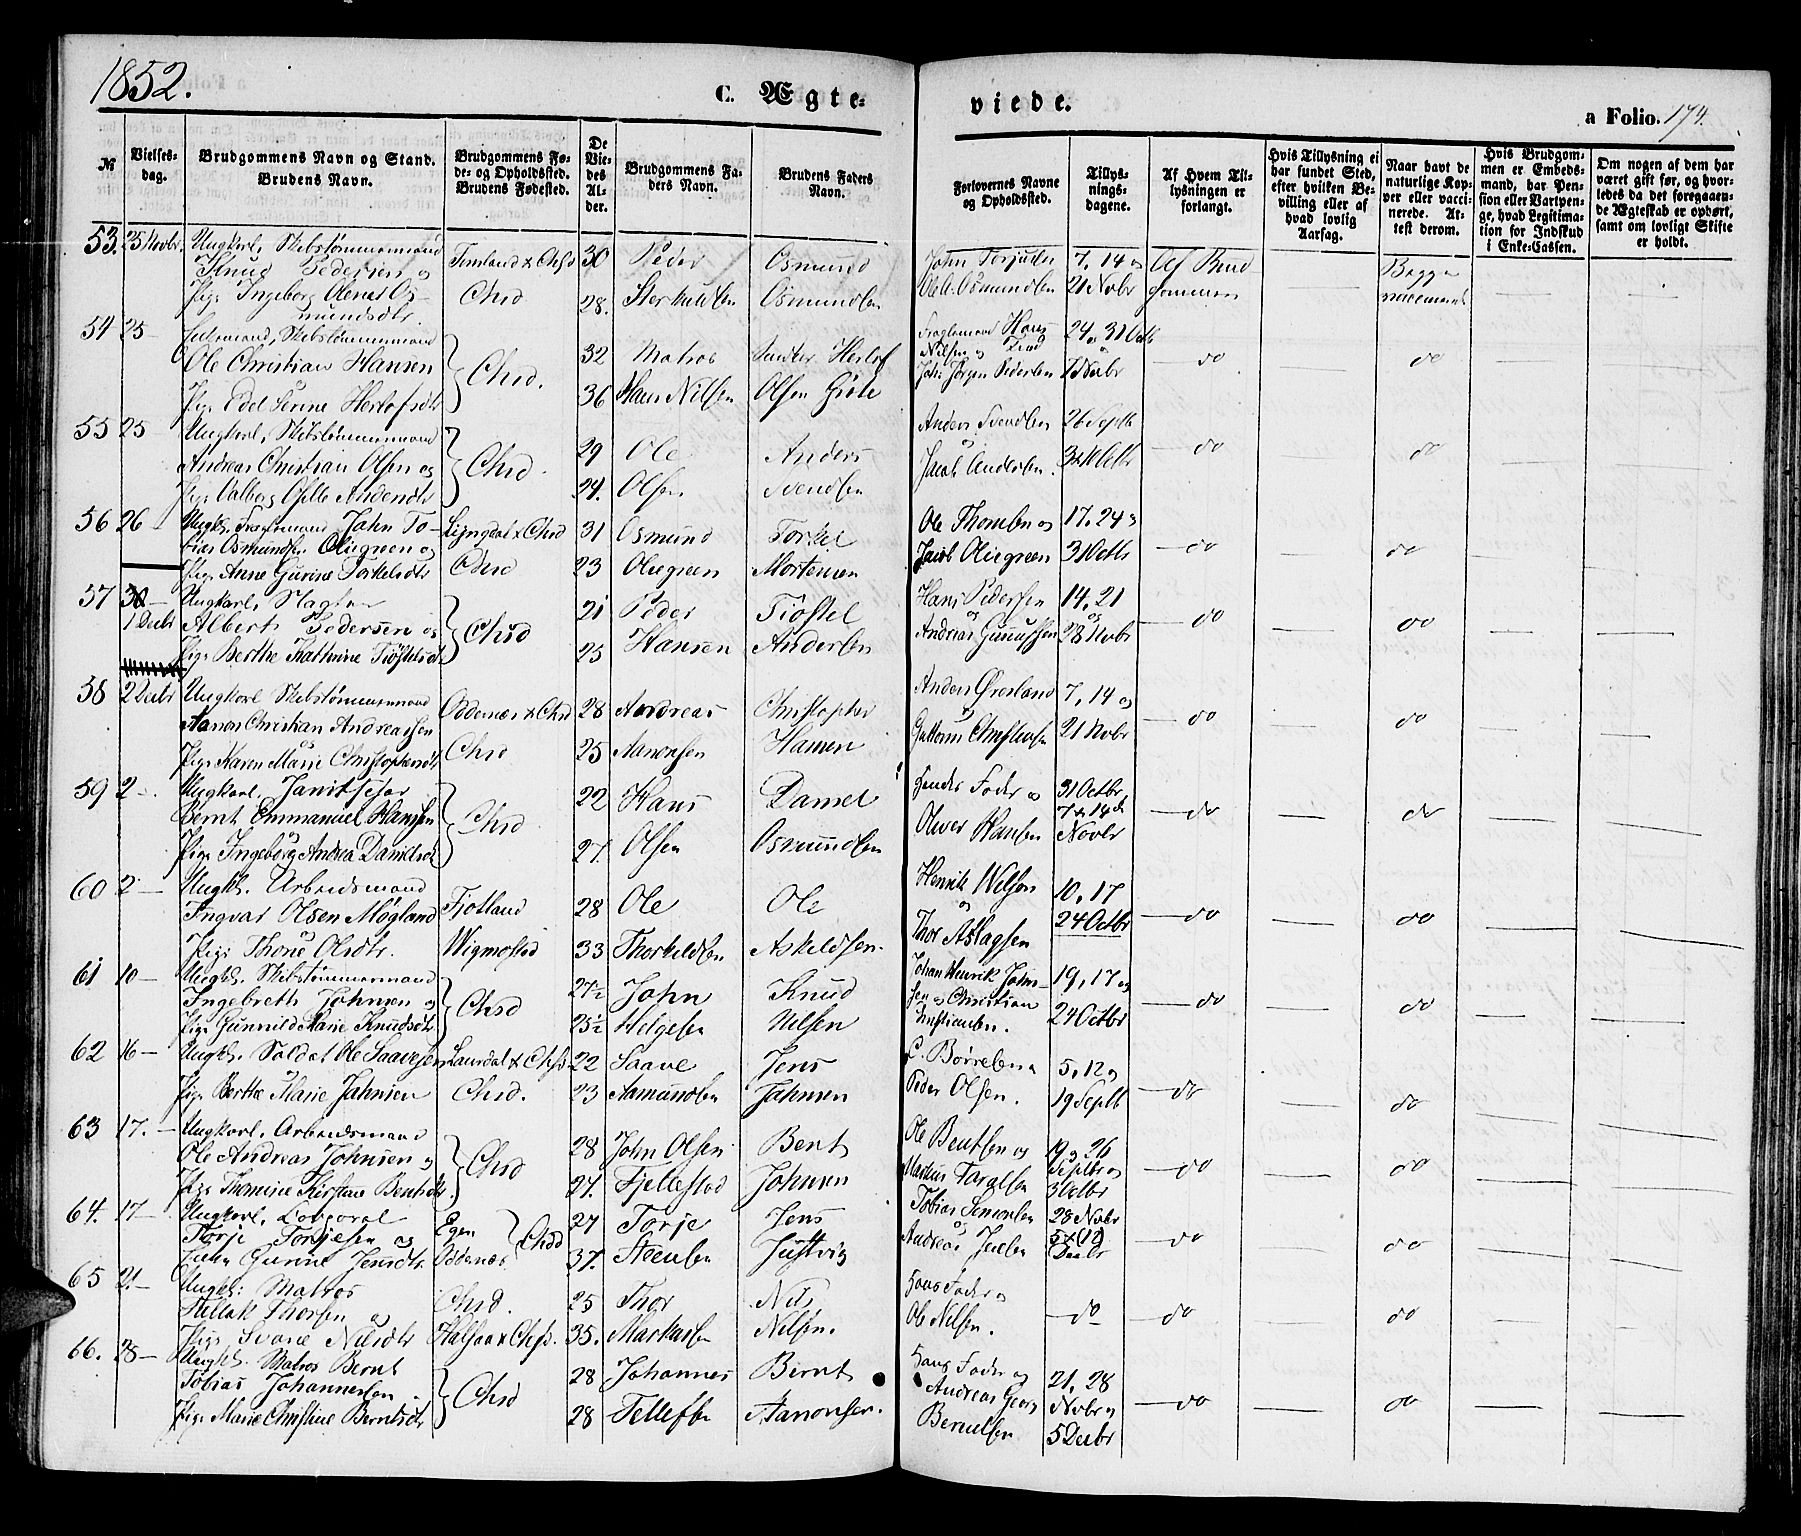 1852.
C. Ægte-
viede.
a Folio. 174.
№
Vielses-
dag.
Brudgommens Navn og Stand.
Brudens Navn.
Brudgommens Fø-
de- og Opholdssted.
Brudens Fødested.
De
Vie-
des
Al-
der.
Brudgommens Fa-
ders Navn.
Brudens Faders
Navn.
Forlovernes Navne
og Opholdssted.
Tillys-
nings-
dagene.
Af Hvem Til-
lysningen er
forlangt.
Hvis Tillysning ei
har fundet Sted,
efter hvilken Be-
villing eller af
hvad lovlig
Aarsag.
Naar havt de
naturlige Kop-
per eller vacci-
nerede. At-
test derom.
Hvis Brudgom-
men er Embeds-
mand, har Pen-
sion eller Vartpen-
ge, hvad Legitima-
tion for Indskud
i Enke-Cassen.
Om nogen af dem har
været gift før, og hvor-
ledes da det foregaaen-
de Ægteskab er ophørt,
samt om lovligt Skifte
er holdt.
53. 25 Novbr. Ungkarl, Skibstømmermand
Knud Pedersen og
Pige Ingeborg Olene Os-
mundsdtr.
Chsd
30 Peder Osmund
28. Osmundsen
7, 14 og
21 Novbr
Begge
vaccinerede
54 25 — Skibstømmermand
Ole Christian Hansen
Pige Edel Serine Herlofsdtr
Chsd.
32 Matros Herlof
36 Hans Nilsen Olsen
Hans
Nilsen og
Jørgen Pedersen
24, 31 Octb
7 Novbr
do do
55 25 Ungkarl, Skibstømmermand
Andreas Christian Olsen og
Pige Valborg Andersdtr
Chsd.
29 Ole Anders
24. Olsen Svendsen
Anders Svendsen
Jacob Andersen.
26 Septb
3 Octbr
do do
56 26 — Ungk. John To-
bias Osmundsen Oliegreen og
Pige Anne Gurine Torkelsdtr
Lyngdal & Chsd
31 Osmund Torkel
23 Oliegreen Mortensen
Ole Thomsen og
Jacob Oliegreen
17, 24 og
31 Octb
do do
57 30 —
1 Decbr
Ungkarl, Slagter
Albert Pedersen og
Pige Berthe Kathrine Tiøstelsdtr
Chsd
21 Peder Tiøstel
25 Hansen Andersen
Hans Pedersen
og
Andreas Gunussen
14, 21
og
28 Novbr
do do
58 2 Decbr Ungkarl Skibstømmermand
Aanon Christian Andreassen
og
Pige Karen Marie Christophersdtr
Oddernæs & Chsd
Chsd
28 Andreas Christopher
25 Aanonsen Hansen
Anders Øresland
og
Guttorm Christensen
7, 14 og
21 Novbr
do do
59 2 — Ungkarl, Janitschar
Bernt Emmanuel Hanssen
Pige Ingeborg Andrea Danielsdtr
Chsd
22 Hans Daniel
27. Olsen Osmundsen
Fader og
Oliver Hansen
31 Octbr
7 & 14de
Novbr
do do
60 2 — Ungk. Arbeidsmand
Ingvar Olsen Møgland
Pige Thone Olsdtr.
Fjotland
Wigmostad
28 Ole Ole
33 Thorkildsen Askildsen
Henrik Nilsen
og
Thor Aslagsen
10, 17
24 Octbr
do do
61 10 — Ungk. Skibstømmermand
Ingebreth Johnsen og
Pige Gunnild Marie Knudsdtr.
Chsd
27½ John Knud
25½ Helgesen Nilsen
Johan Henrik John-
sen og Christian
Christiansen.
19, 17 og
24 Octbr
do do
62 16 — Ungk. Soldat Ole Saavesen
Pige Berthe Marie Jahnsen
Laurdal & Chsd
Chsd.
22 Saave Jens
23 Aamundsen Jahnsen
Peder Olsen.
5, 12 og
19 Septb
do do
63 17. — Ungkarl. Arbeidsmand
Ole Andreas Johnsen og
Pige Thomine Kirstine Berntsdtr.
Chsd
28 John Olsen Bent
27. Fjellestad Johnsen
Ole Bentsen og
Markus Taralsen
19, 26
Septbr og
3 Octbr
do do
64. 17 — Ungkarl,
Torje Torjesen og
Gurine Jensdtr
Egen
Oddernæs
Chsd
27 Torje Jens
37. Steensen Justvig
Tobias Simonsen
og
Andreas Jensen
28 Novbr
5 & 12
Decbr
do do
65 21 — Ungk: Matros
Thorsen og
Pige Svane Nilsdtr
Chsd.
Halsaa & Chsd.
25 Thor Nils
35. Markussen Nilsen.
Hans Fader og
Ole Nilsen.
do do do
66. 28 — Ungk. Matros Bernt
Tobias Johannessen
Pige Marie Christine Berntsdtr
Chsd
28 Johannes Bernt
28 Tellefsen Aanonsen.
Hans Fader og
Andreas Georg
Berntsen
21, 28
Novbr og
5 Decbr
do do